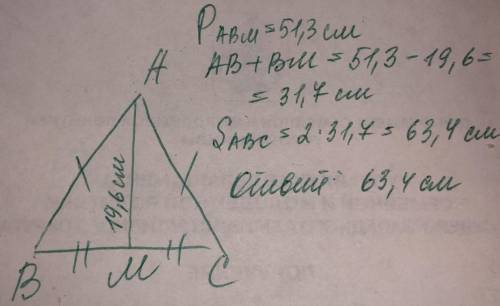 P ABM = 51,3 см
AB + BM = 51,3 - 19,6 =
= 31,7 см
S ABC = 2·31,7 = 63,4 см
Ответ: 63,4 см
A
19,6 см
B M C